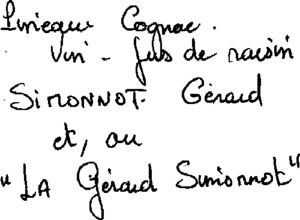 Cognac.
Vin - Jus de raisin
SIMONNOT Gérard
et, ou
"LA Gérard Simonnot"